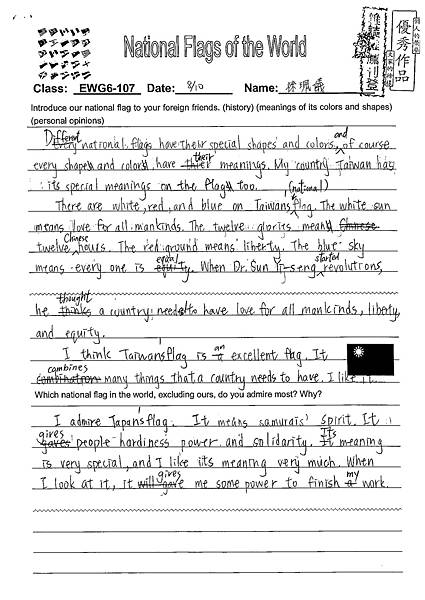 優秀作品
National Flags of the World
Class: EWG6-107 Date: 8/10 Name: 徐珮儀
Introduce our national flag to your foreign friends. (history) (meanings of its colors and shapes)
(personal opinions)
Different and
Every national flags have their special shapes and colors, of course
their
every shapes and colors have thier meanings. My country Taiwan has
its special meanings on the flags too. (national)
There are white, red, and blue on Taiwans flag. The white sun
means love for all mankinds. The twelve glorites means Chinese
Chinese
twelve hours. The red ground means liberty. The blue sky
equal started
means every one is equity. When Dr. Sun Yi-seng revolutions,
thought
he thinks a country needs to have love for all mankinds, liberty,
and equity.
an
I think Taiwans flag is a excellent flag. It
combines
combination many things that a country needs to have. I like it.
Which national flag in the world, excluding ours, do you admire most? Why?
I admire Japans flag. It means samurais' spirit. It
gives Its
gaves people hardiness power and solidarity. It meaning
is very special, and I like its meaning very much. When
gives my
I look at it, it will gave me some power to finish a work.